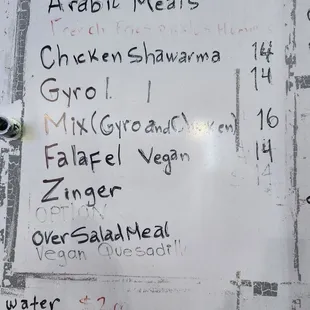 Arabic Meals
French Fries
Chicken Shawarma 14
Gyro 14
Mix (Gyro and Chicken) 16
Falafel Vegan 14
Zinger
OPTION
Over Salad Meal
Vegan Quesadill
water $2